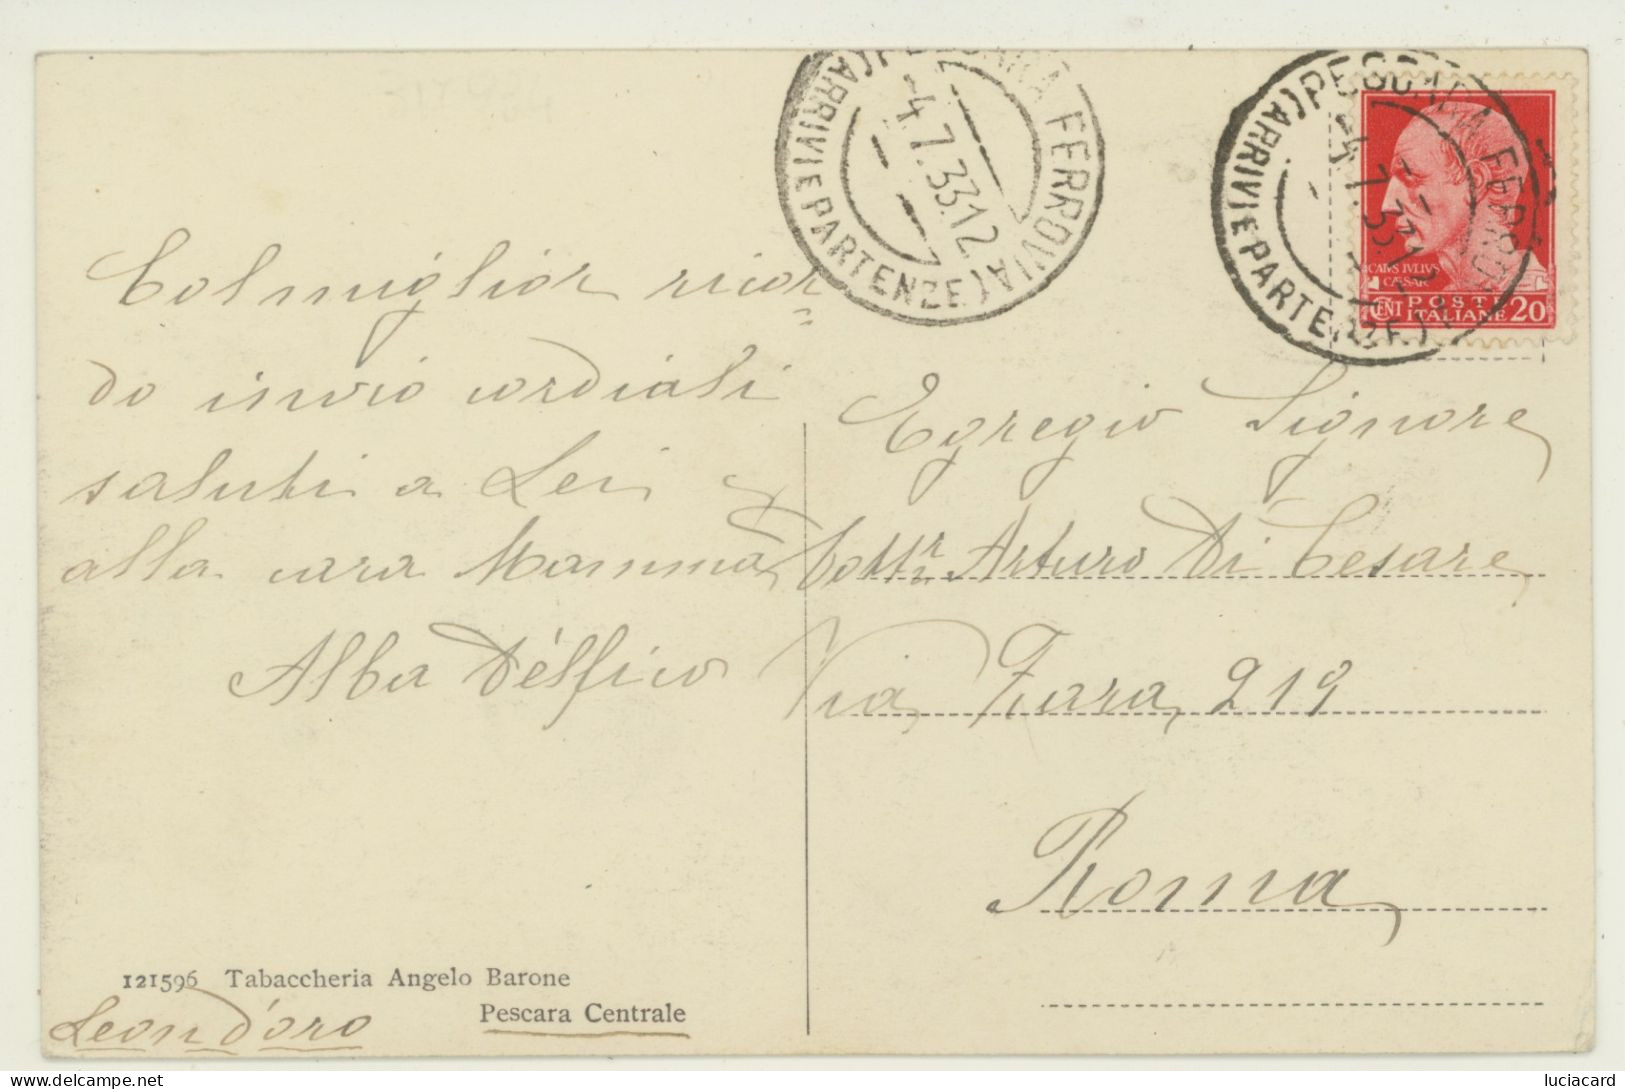 PESCARA FERROVIA
(ARRIVI E PARTENZE)
-4.7.33.12
PESCARA FERROVIA
(ARRIVI E PARTENZE)
-4.7.33.12
CAIVS IVLIVS
CAESAR
CENT POSTE
ITALIANE 20
Col miglior ricor
do invio cordiali
saluti a Lei e
alla cara Mamma
Alba Délfico
Egregio Signore
Dottr. Arturo Di Cesare
Via Zara, 219
Roma
121596 Tabaccheria Angelo Barone
Pescara Centrale
Leon d'oro
luciacard